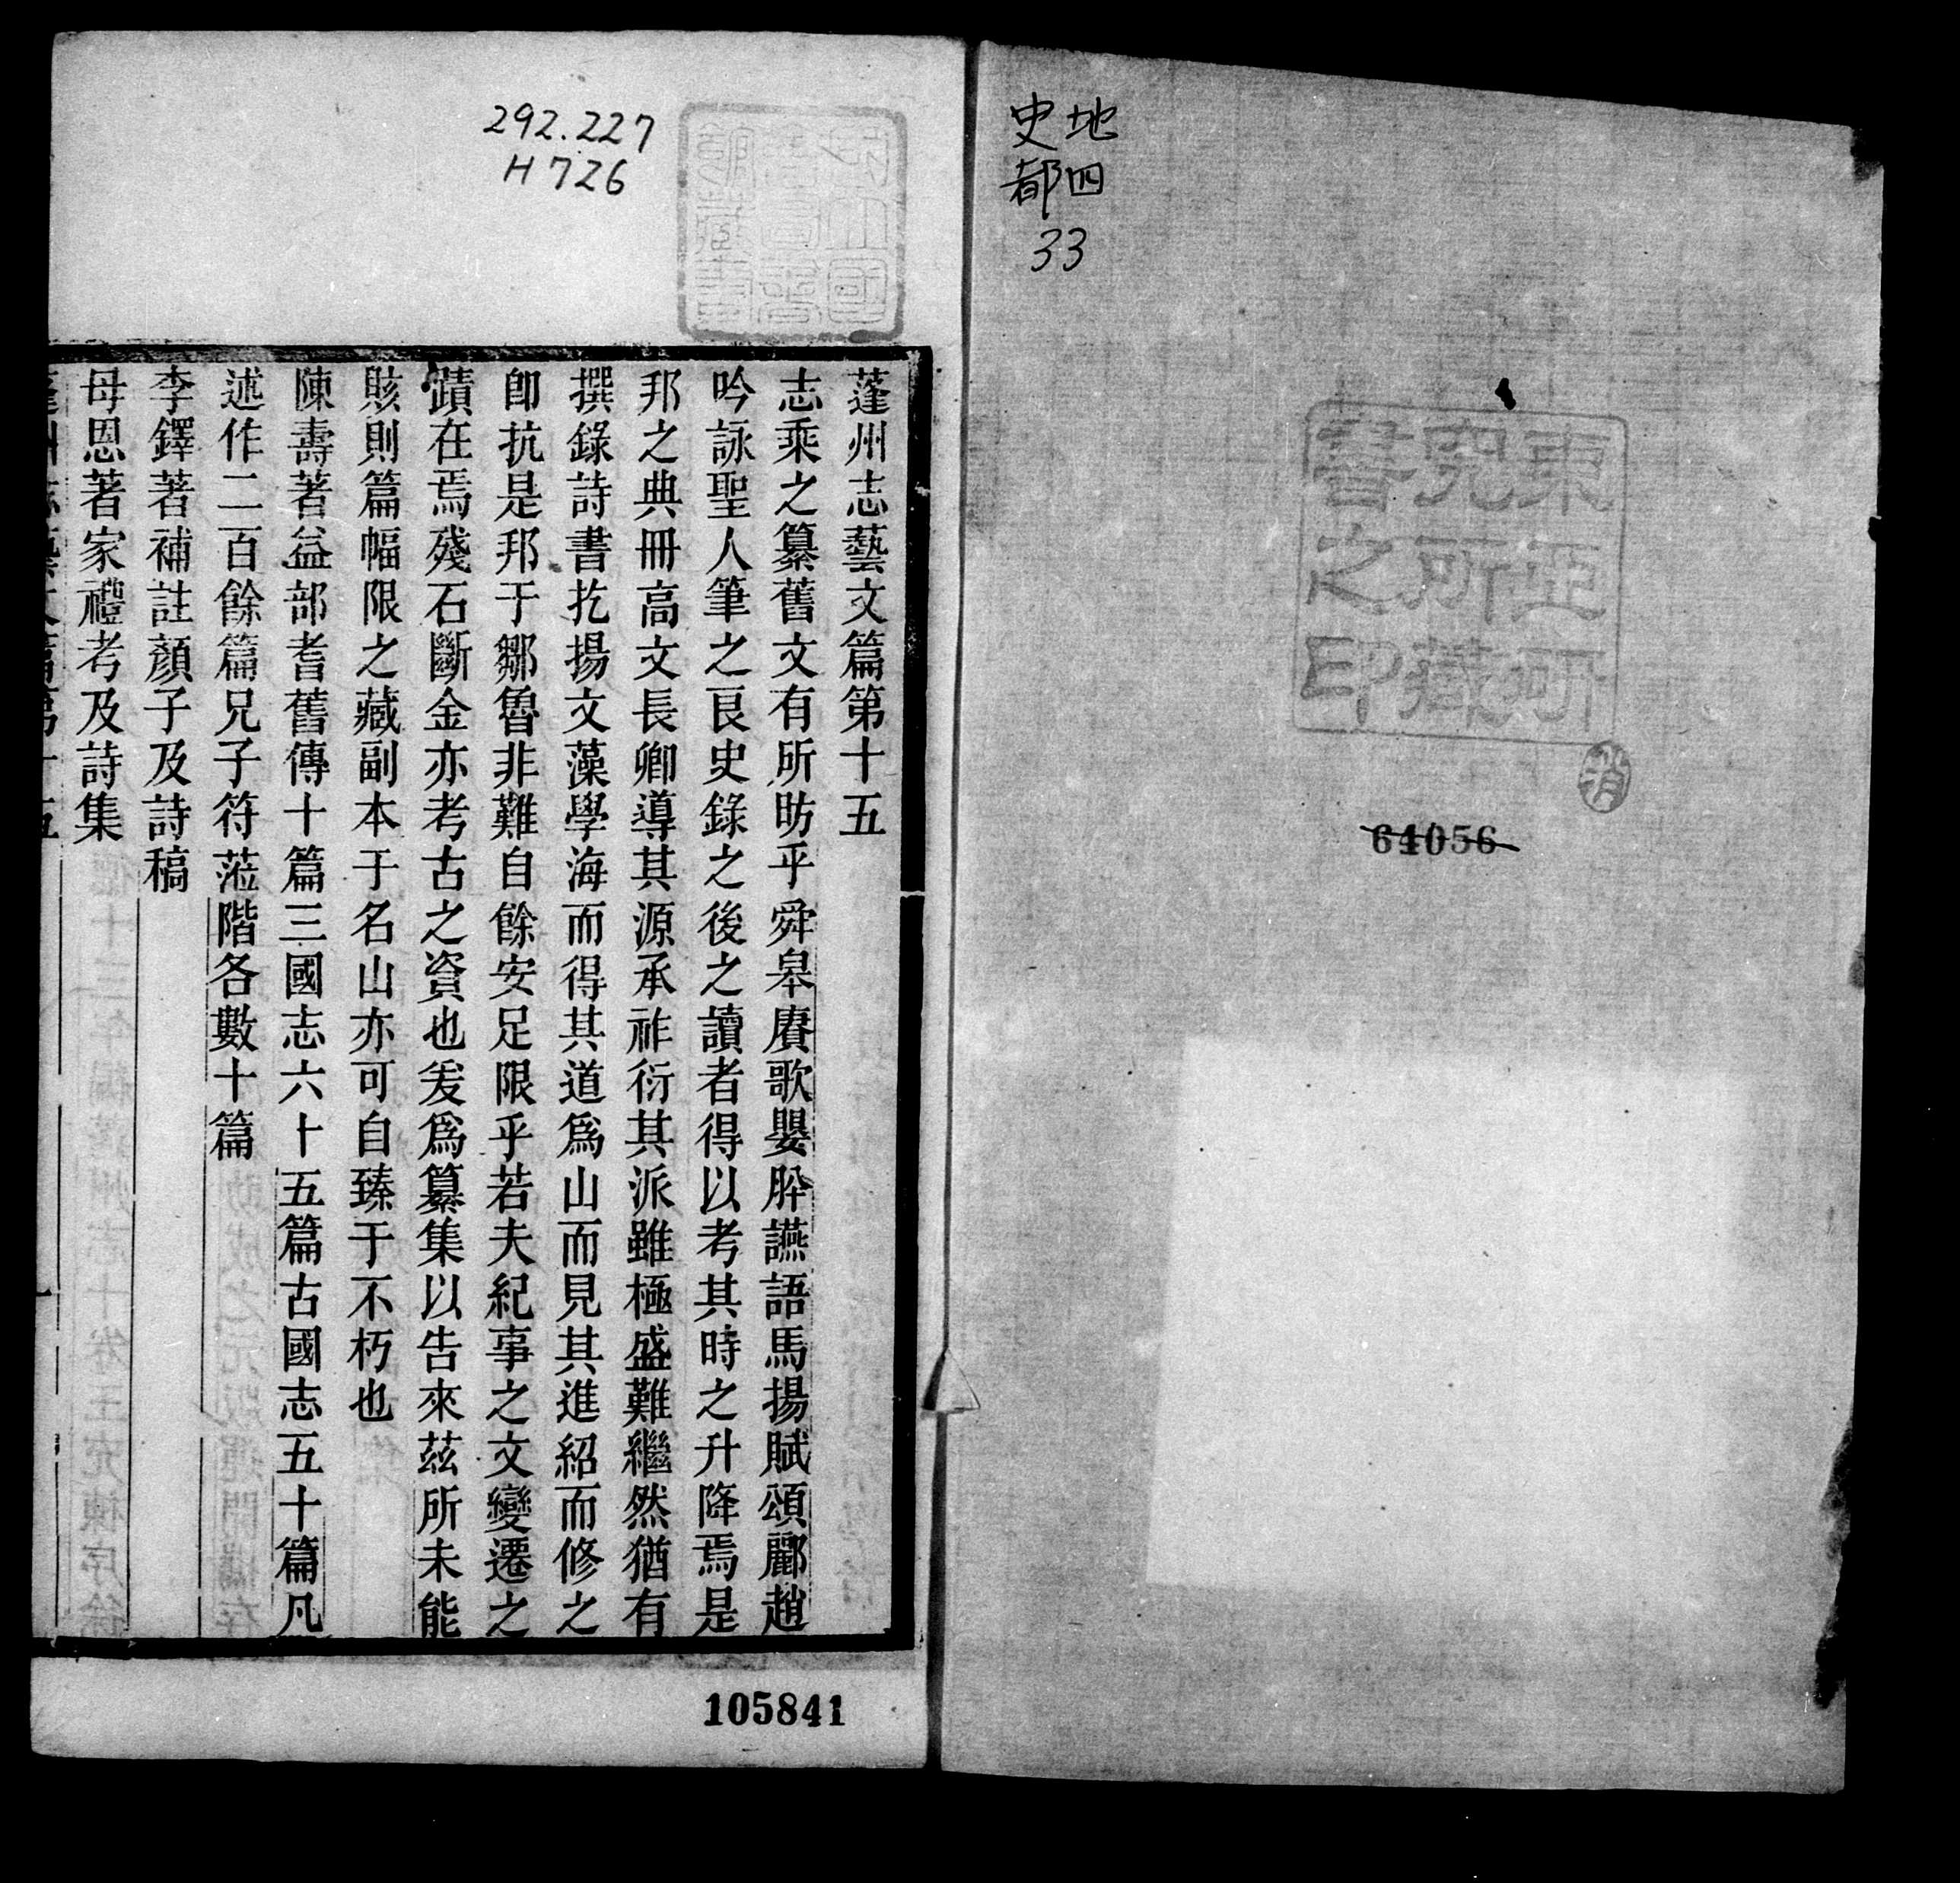 地四
史都
33
東亞研
究所藏
書之印
消
64056
292.227
H726
蓬州志藝文篇第十五
志乘之纂舊文有所昉乎舜皋賡歌嬰肸讌語馬揚賦頌酈趙
吟詠聖人筆之良史錄之後之讀者得以考其時之升降焉是
邦之典冊高文長卿導其源承祚衍其派雖極盛難繼然猶有
撰錄詩書扢揚文藻學海而得其道為山而見其進紹而修之
卽抗是邦于鄒魯非難自餘安足限乎若夫紀事之文變遷之
蹟在焉殘石斷金亦考古之資也爰為纂集以告來茲所未能
賅則篇幅限之藏副本于名山亦可自臻于不朽也
陳壽著益部耆舊傳十篇三國志六十五篇古國志五十篇凡
述作二百餘篇兄子符蒞階各數十篇
李鐸著補註顏子及詩稿
母恩著家禮考及詩集
105841